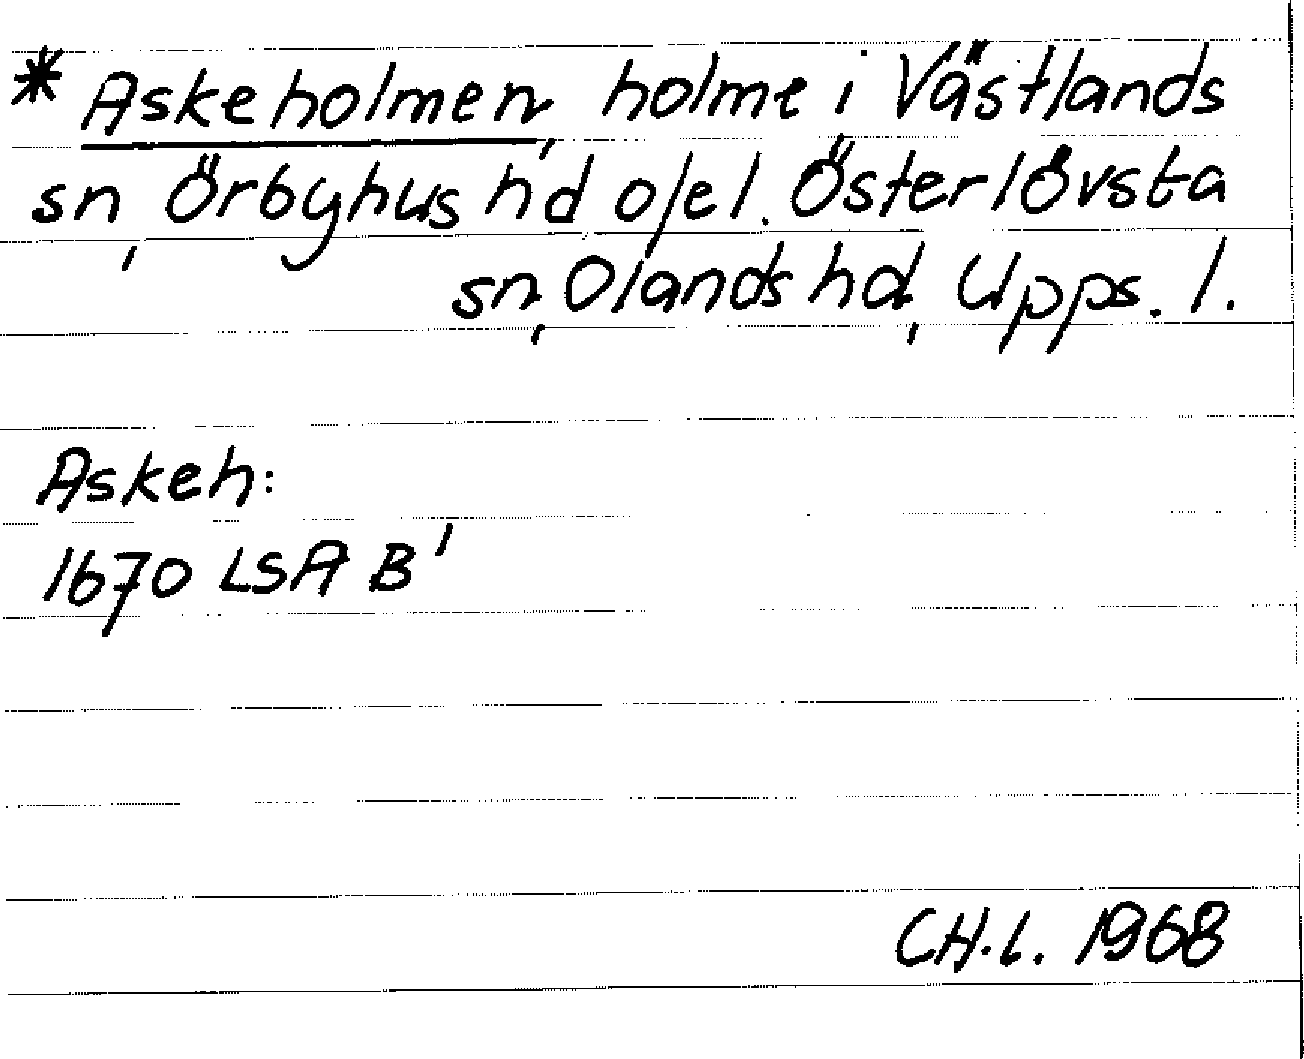 * Askeholmen, holme i Västlands
sn, Örbyhus hd o/el. Österlövsta
sn, Olands hd, Upps. l.
Askeh:
1670 LSA B'
CH.L. 1968